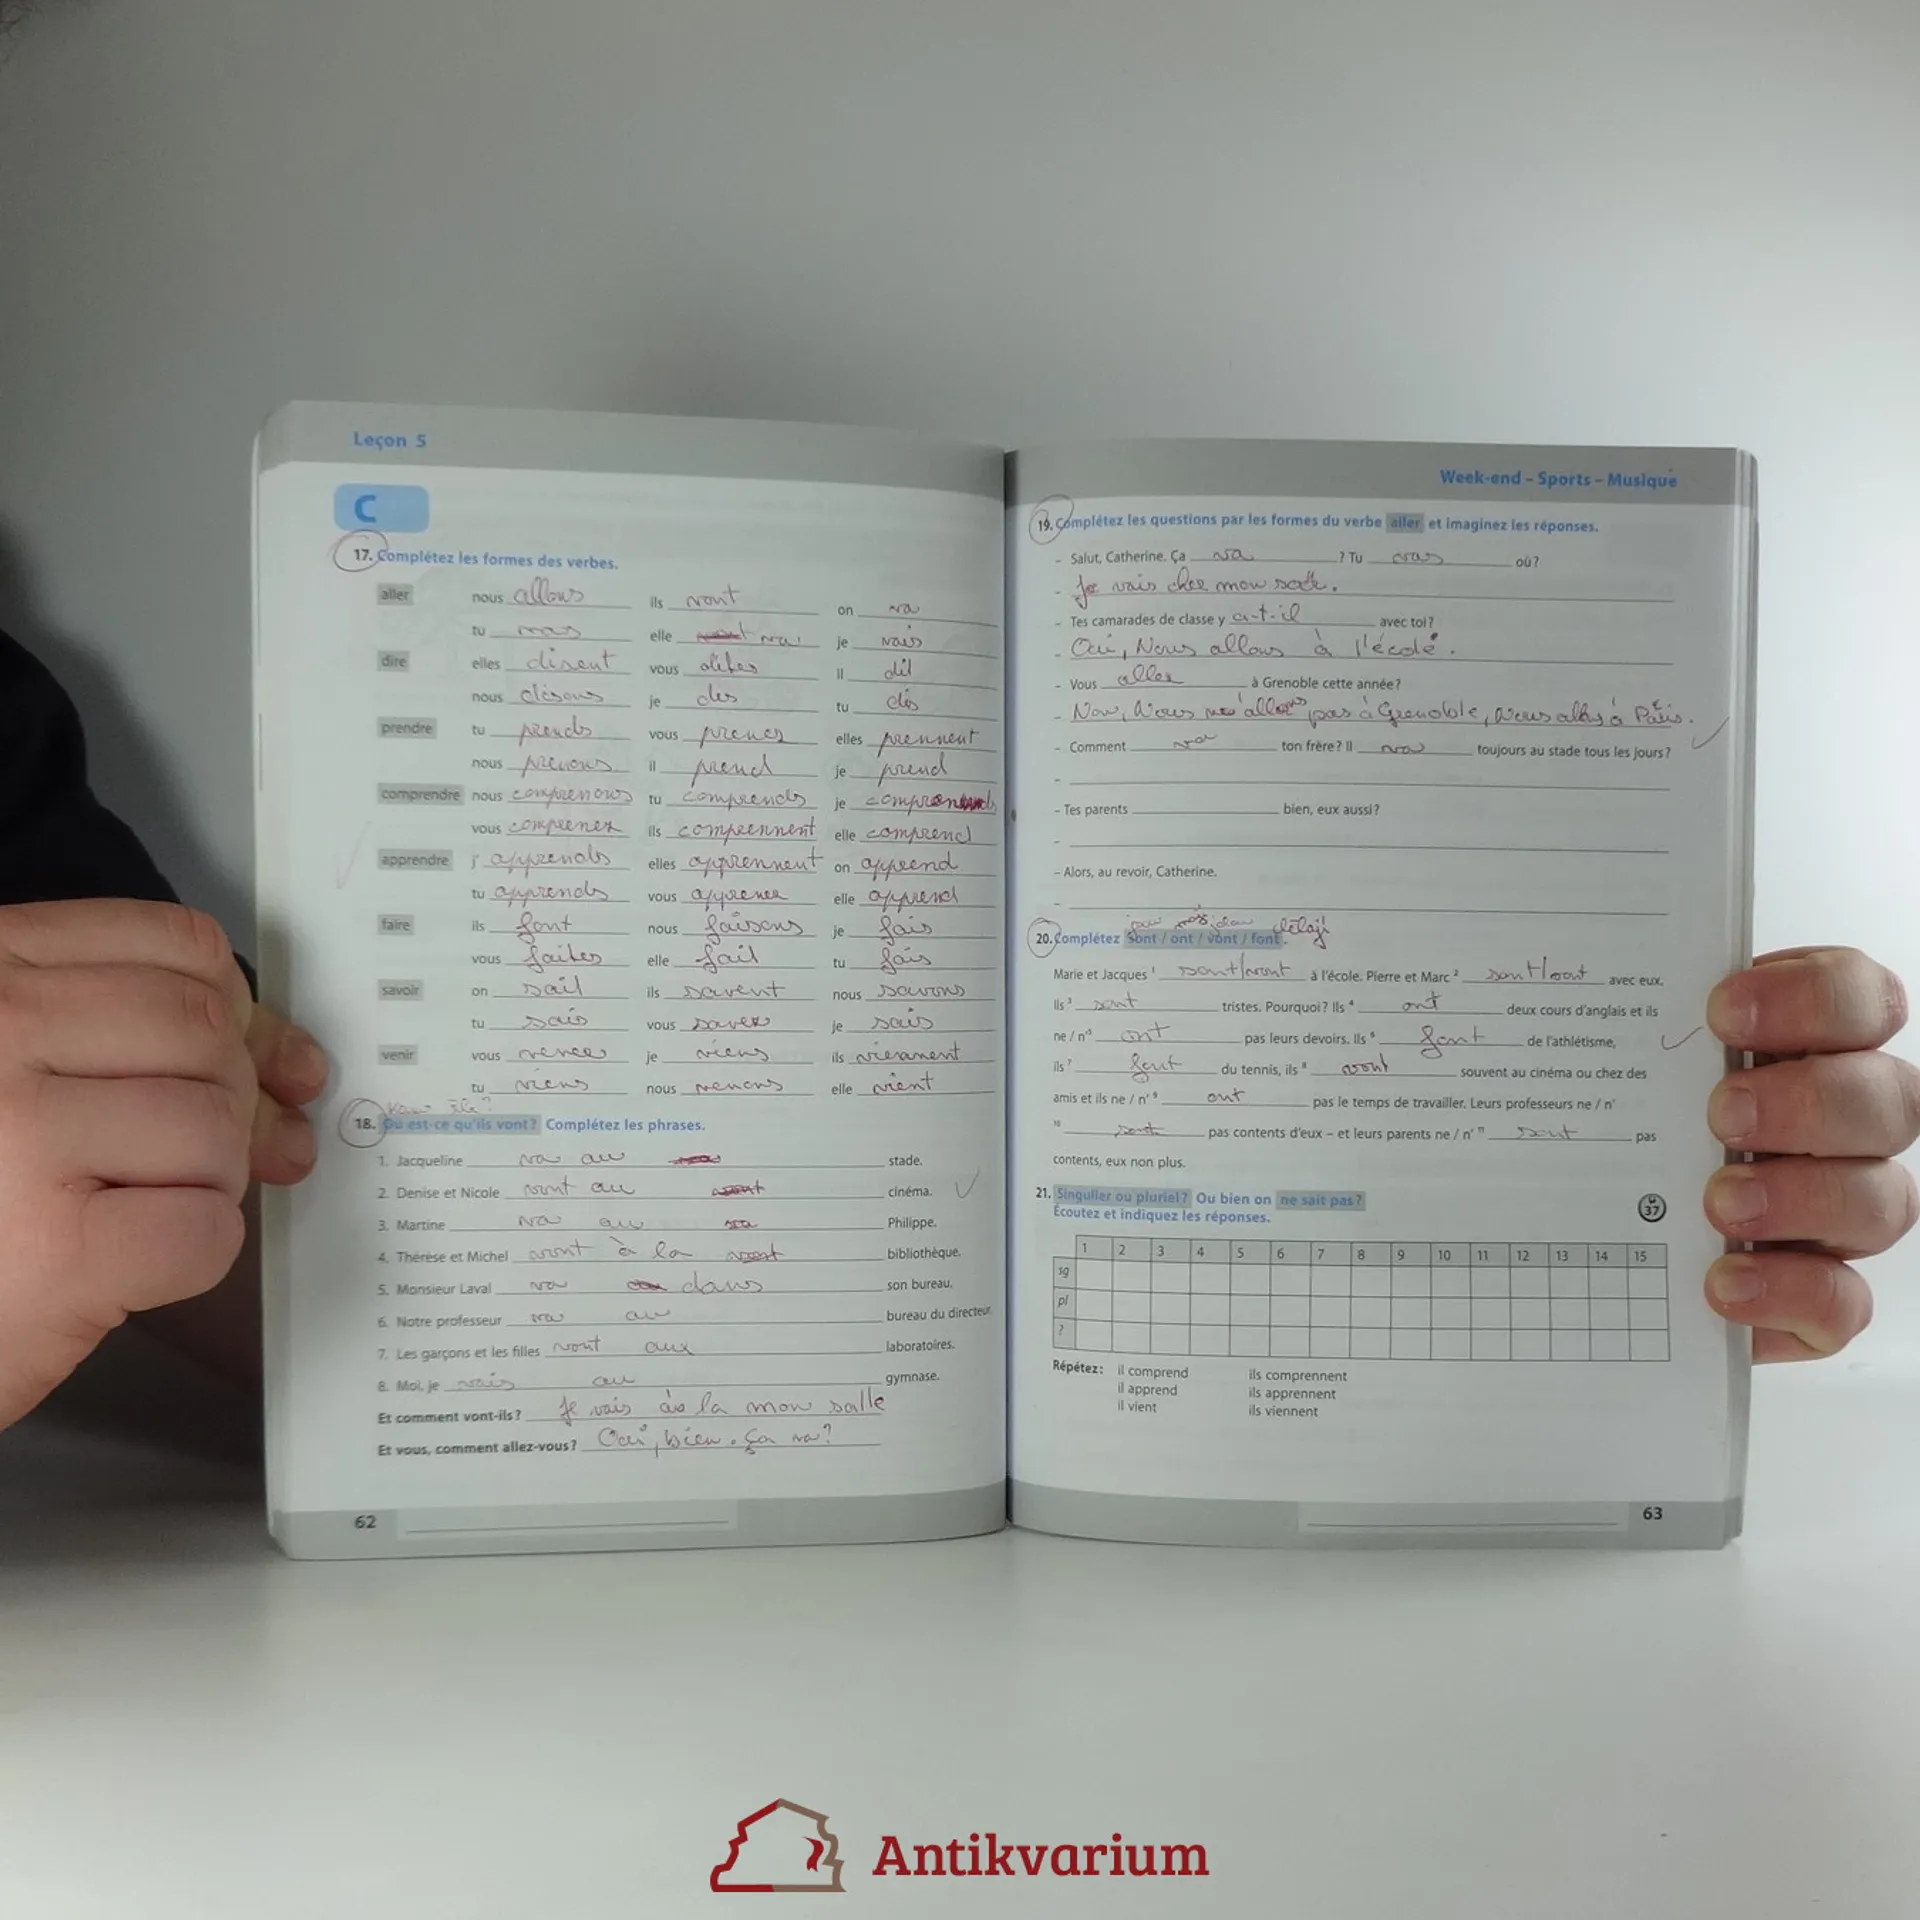 Leçon 5
C
17. Complétez les formes des verbes.
aller nous allons ils vont on va
tu vas elle va je vais
dire elles disent vous dites il dit
nous disons je dis tu dis
prendre tu prends vous prenez elles prennent
nous prenons il prend je prend
comprendre nous comprenons tu comprends je comprends
vous comprenez ils comprennent elle comprend
apprendre j' apprends elles apprennent on apprend
tu apprends vous apprenez elle apprend
faire ils font nous faisons je fais
vous faites elle fait tu fais
savoir on sait ils savent nous savons
tu sais vous savez je sais
venir vous venez je viens ils viennent
tu viens nous venons elle vient
18. Où est-ce qu'ils vont? Complétez les phrases.
1. Jacqueline va au stade.
2. Denise et Nicole vont au cinéma.
3. Martine va au Philippe.
4. Thérèse et Michel vont à la bibliothèque.
5. Monsieur Laval va dans son bureau.
6. Notre professeur va au bureau du directeur.
7. Les garçons et les filles vont aux laboratoires.
8. Moi, je vais au gymnase.
Et comment vont-ils? Je vais la mon salle
Et vous, comment allez-vous? Oui, bien. Ça va?
62
Week-end – Sports – Musique
19. Complétez les questions par les formes du verbe aller et imaginez les réponses.
– Salut, Catherine. Ça va ? Tu vas où?
– Je vais chez mon
– Tes camarades de classe y a-t-il avec toi?
– Oui, Nous allons à l'école.
– Vous allez à Grenoble cette année?
– Non, Nous n'allons pas à Grenoble, Nous à Paris.
– Comment va ton frère? Il va toujours au stade tous les jours?
–
– Tes parents bien, eux aussi?
–
– Alors, au revoir, Catherine.
–
20. Complétez sont / ont / vont / font.
Marie et Jacques 1 sont/vont à l'école. Pierre et Marc 2 sont/vont avec eux.
Ils 3 sont tristes. Pourquoi? Ils 4 ont deux cours d'anglais et ils
ne / n' 5 ont pas leurs devoirs. Ils 6 font de l'athlétisme,
ils 7 font du tennis, ils 8 vont souvent au cinéma ou chez des
amis et ils ne / n' 9 ont pas le temps de travailler. Leurs professeurs ne / n'
10 sont pas contents d'eux – et leurs parents ne / n' 11 sont pas
contents, eux non plus.
21. Singulier ou pluriel? Ou bien on ne sait pas?
Écoutez et indiquez les réponses.
37
1 2 3 4 5 6 7 8 9 10 11 12 13 14 15
sg
pl
?
Répétez: il comprend ils comprennent
il apprend ils apprennent
il vient ils viennent
63
Antikvarium